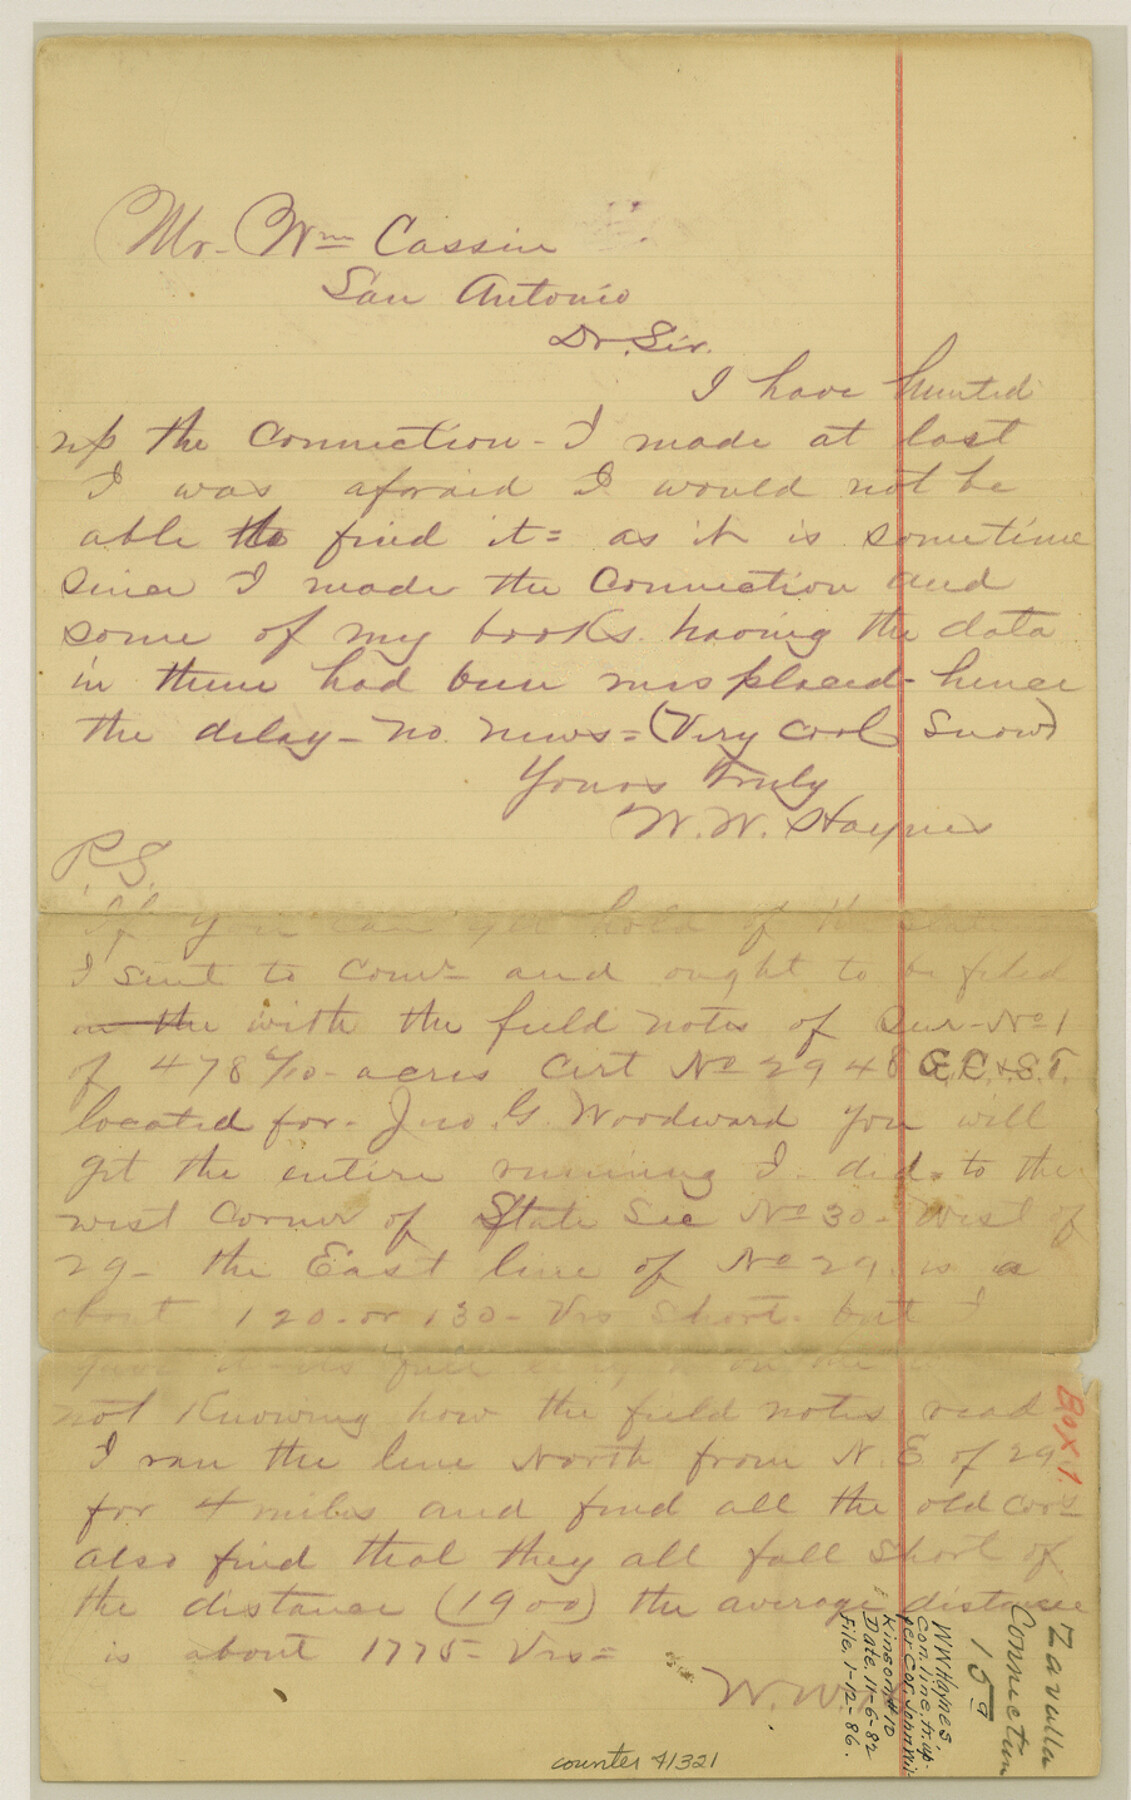 Mr. Wm Cassin
San Antonio
Dr. Sir.
I have hunted
up the Connection - I made at last
I was afraid I would not be
able to find it = as it is sometime
since I made the Connection and
some of my books having the data
in them had been misplaced - hence
the delay - no news = (Very Cool Snow)
Yours Truly
W. W. Haynes
P.S.
If you can get hold of the
I sent to Comr and ought to be filed
in the with the field notes of Sur - No 1
of 478 acres Cert No 2948 G.C. & S.T.
located for - Jno. G. Woodward you will
get the entire running I did to the
west Corner of State Sec No 30 - West of
29 - the East line of No 29 is a
bout 120 - or 130 - Vrs Short - but I
gave it its full on the
not Knowing how the field notes read
I ran the line North from N.E of 29
for 4 miles and find all the old Cors
also find that they all fall short of
the distance (1900) the average distance
is about 1775 - Vrs =
W.W.
Box 1.
Zavalla
Connection
15a
W W Haynes,
con. line, tr. up
per Cor. John Wil-
kinson # 10
Date. 11-6-82
File. 1-12-86.
counter 41321